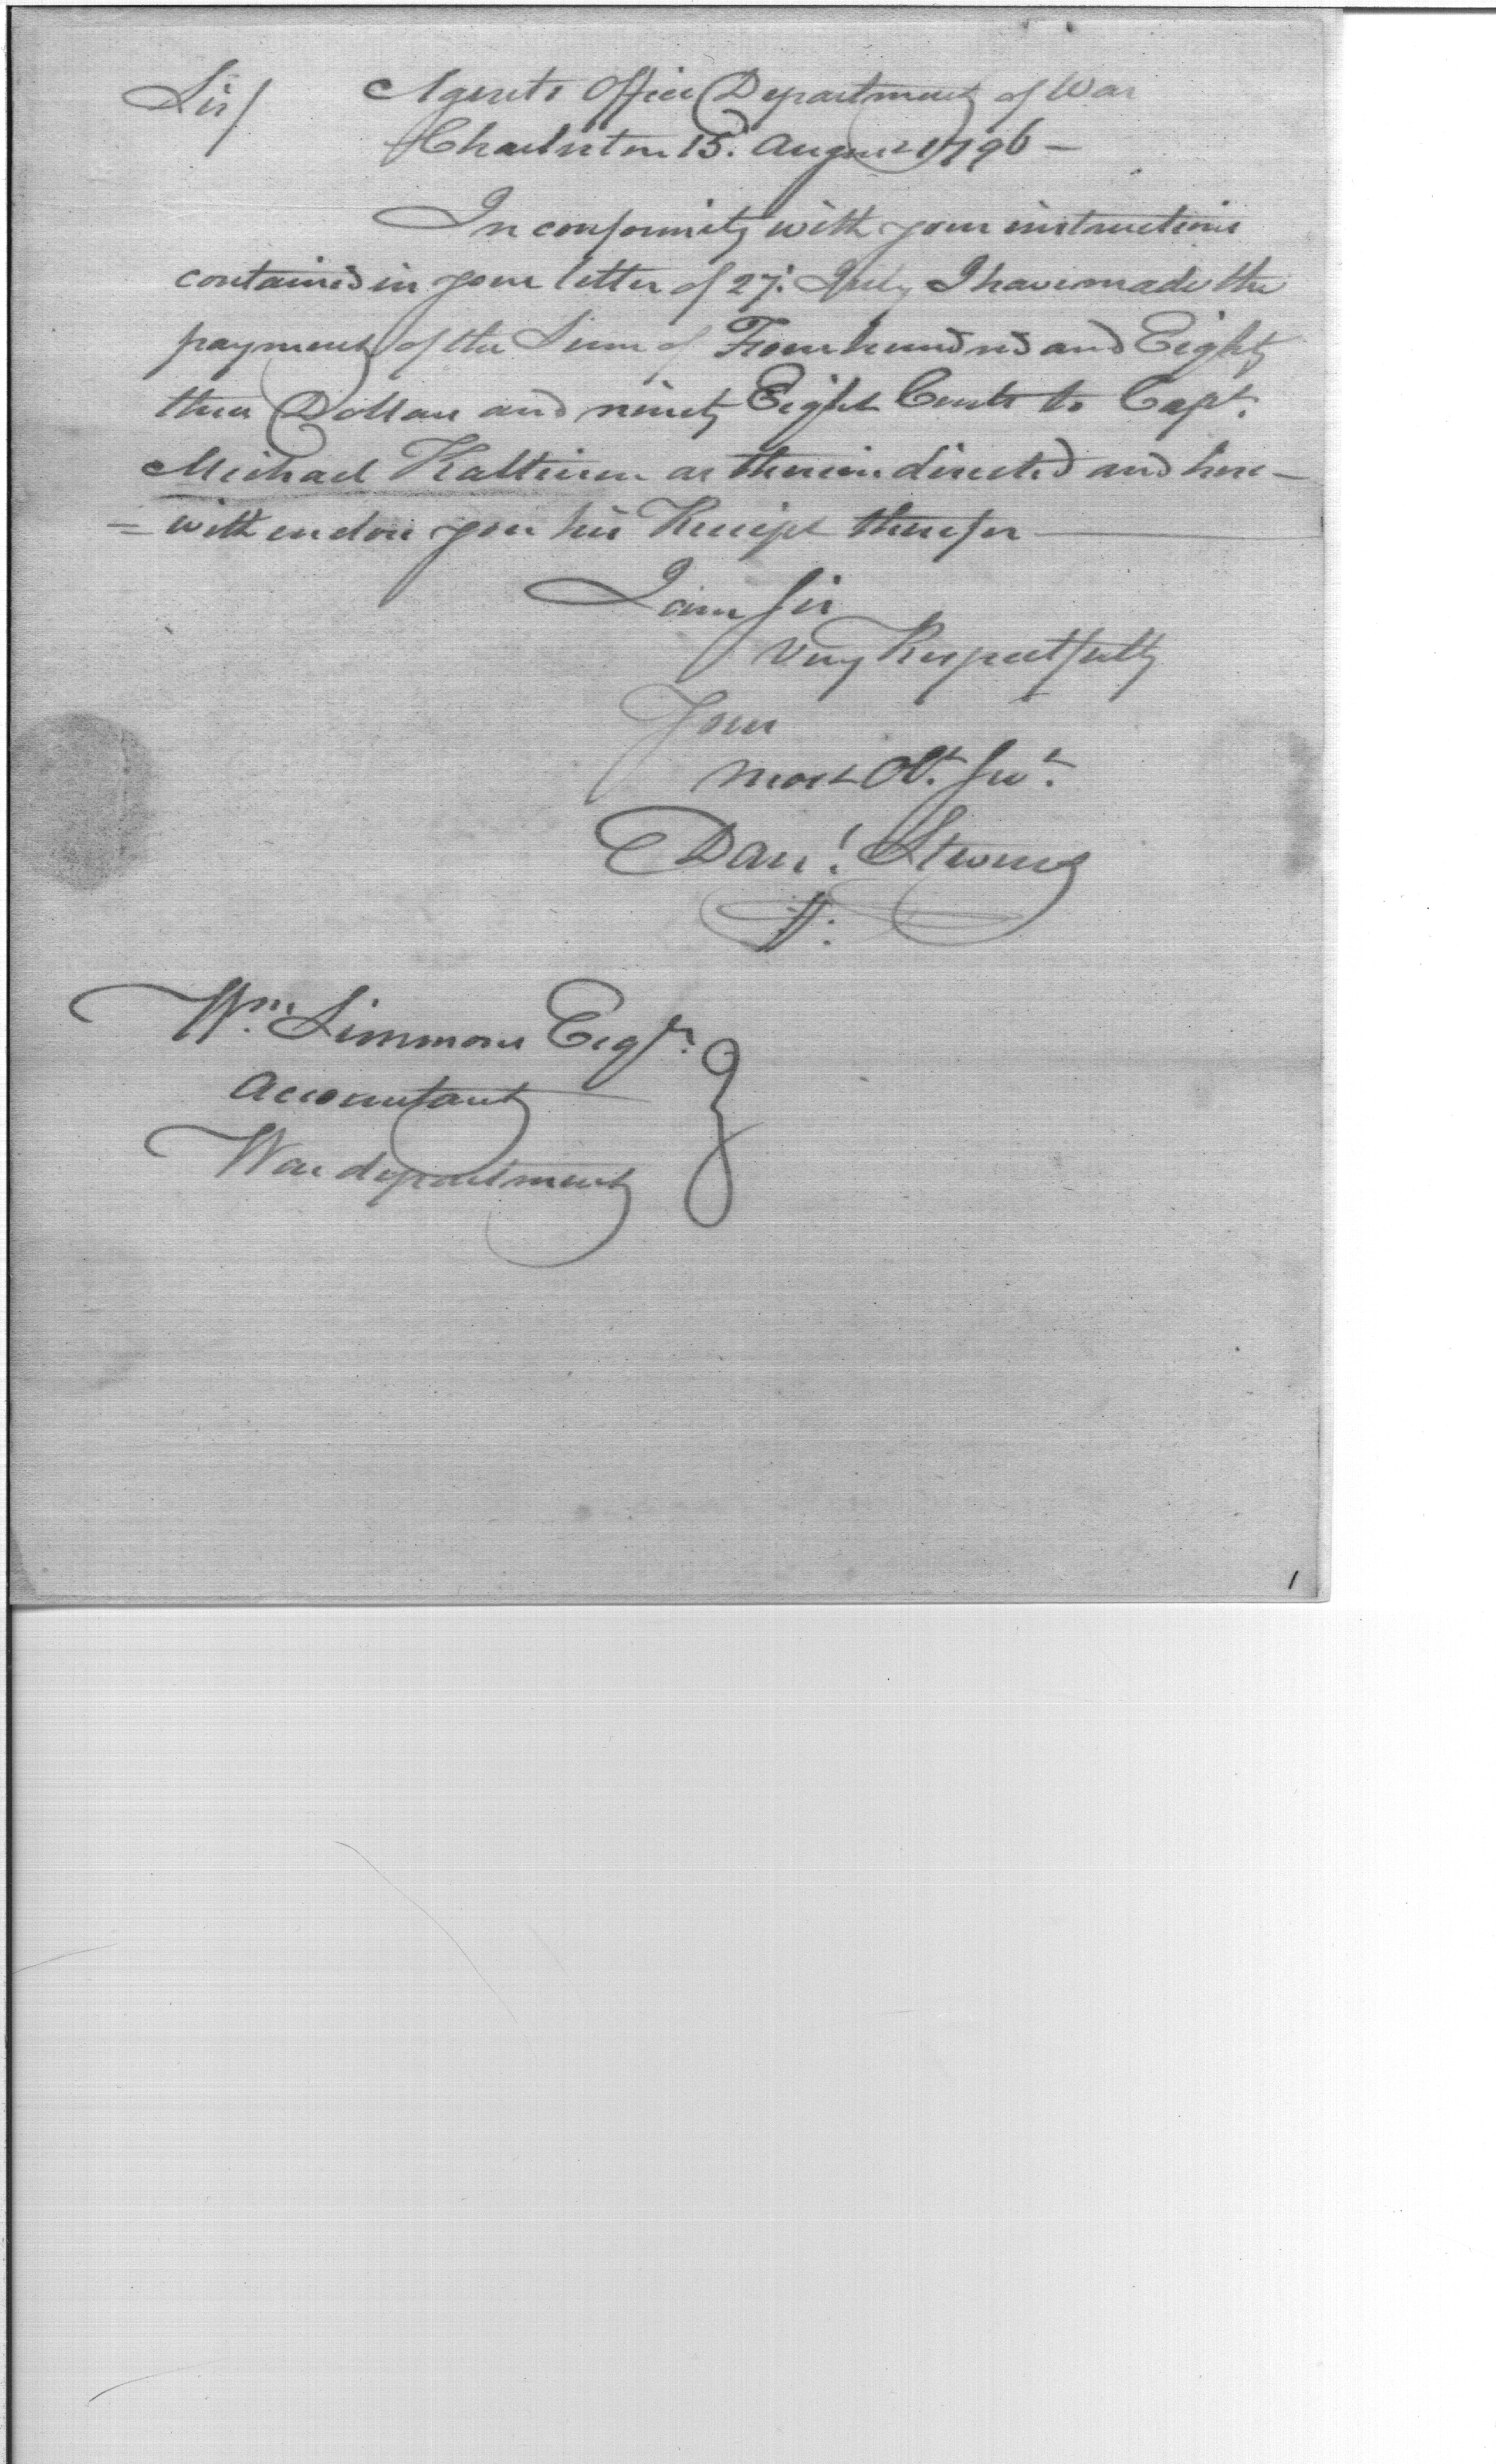 Sir/ Agents Office Department of War
Charleston 15. August 1796 —
In conformity with your instructions
contained in your letter of 27: July I have made the
payment of the Sum of Four hundred and Eighty
three Dollars and ninety Eight Cents to Capt.
Michael Kalteisen as therein directed and here —
= with enclose you his Receipt therefor —
I am Sir
Very Respectfully
Your
most Obt. Servt.
Danl. Stevens
Wm. Simmons Esqr.
Accountant
War department
1